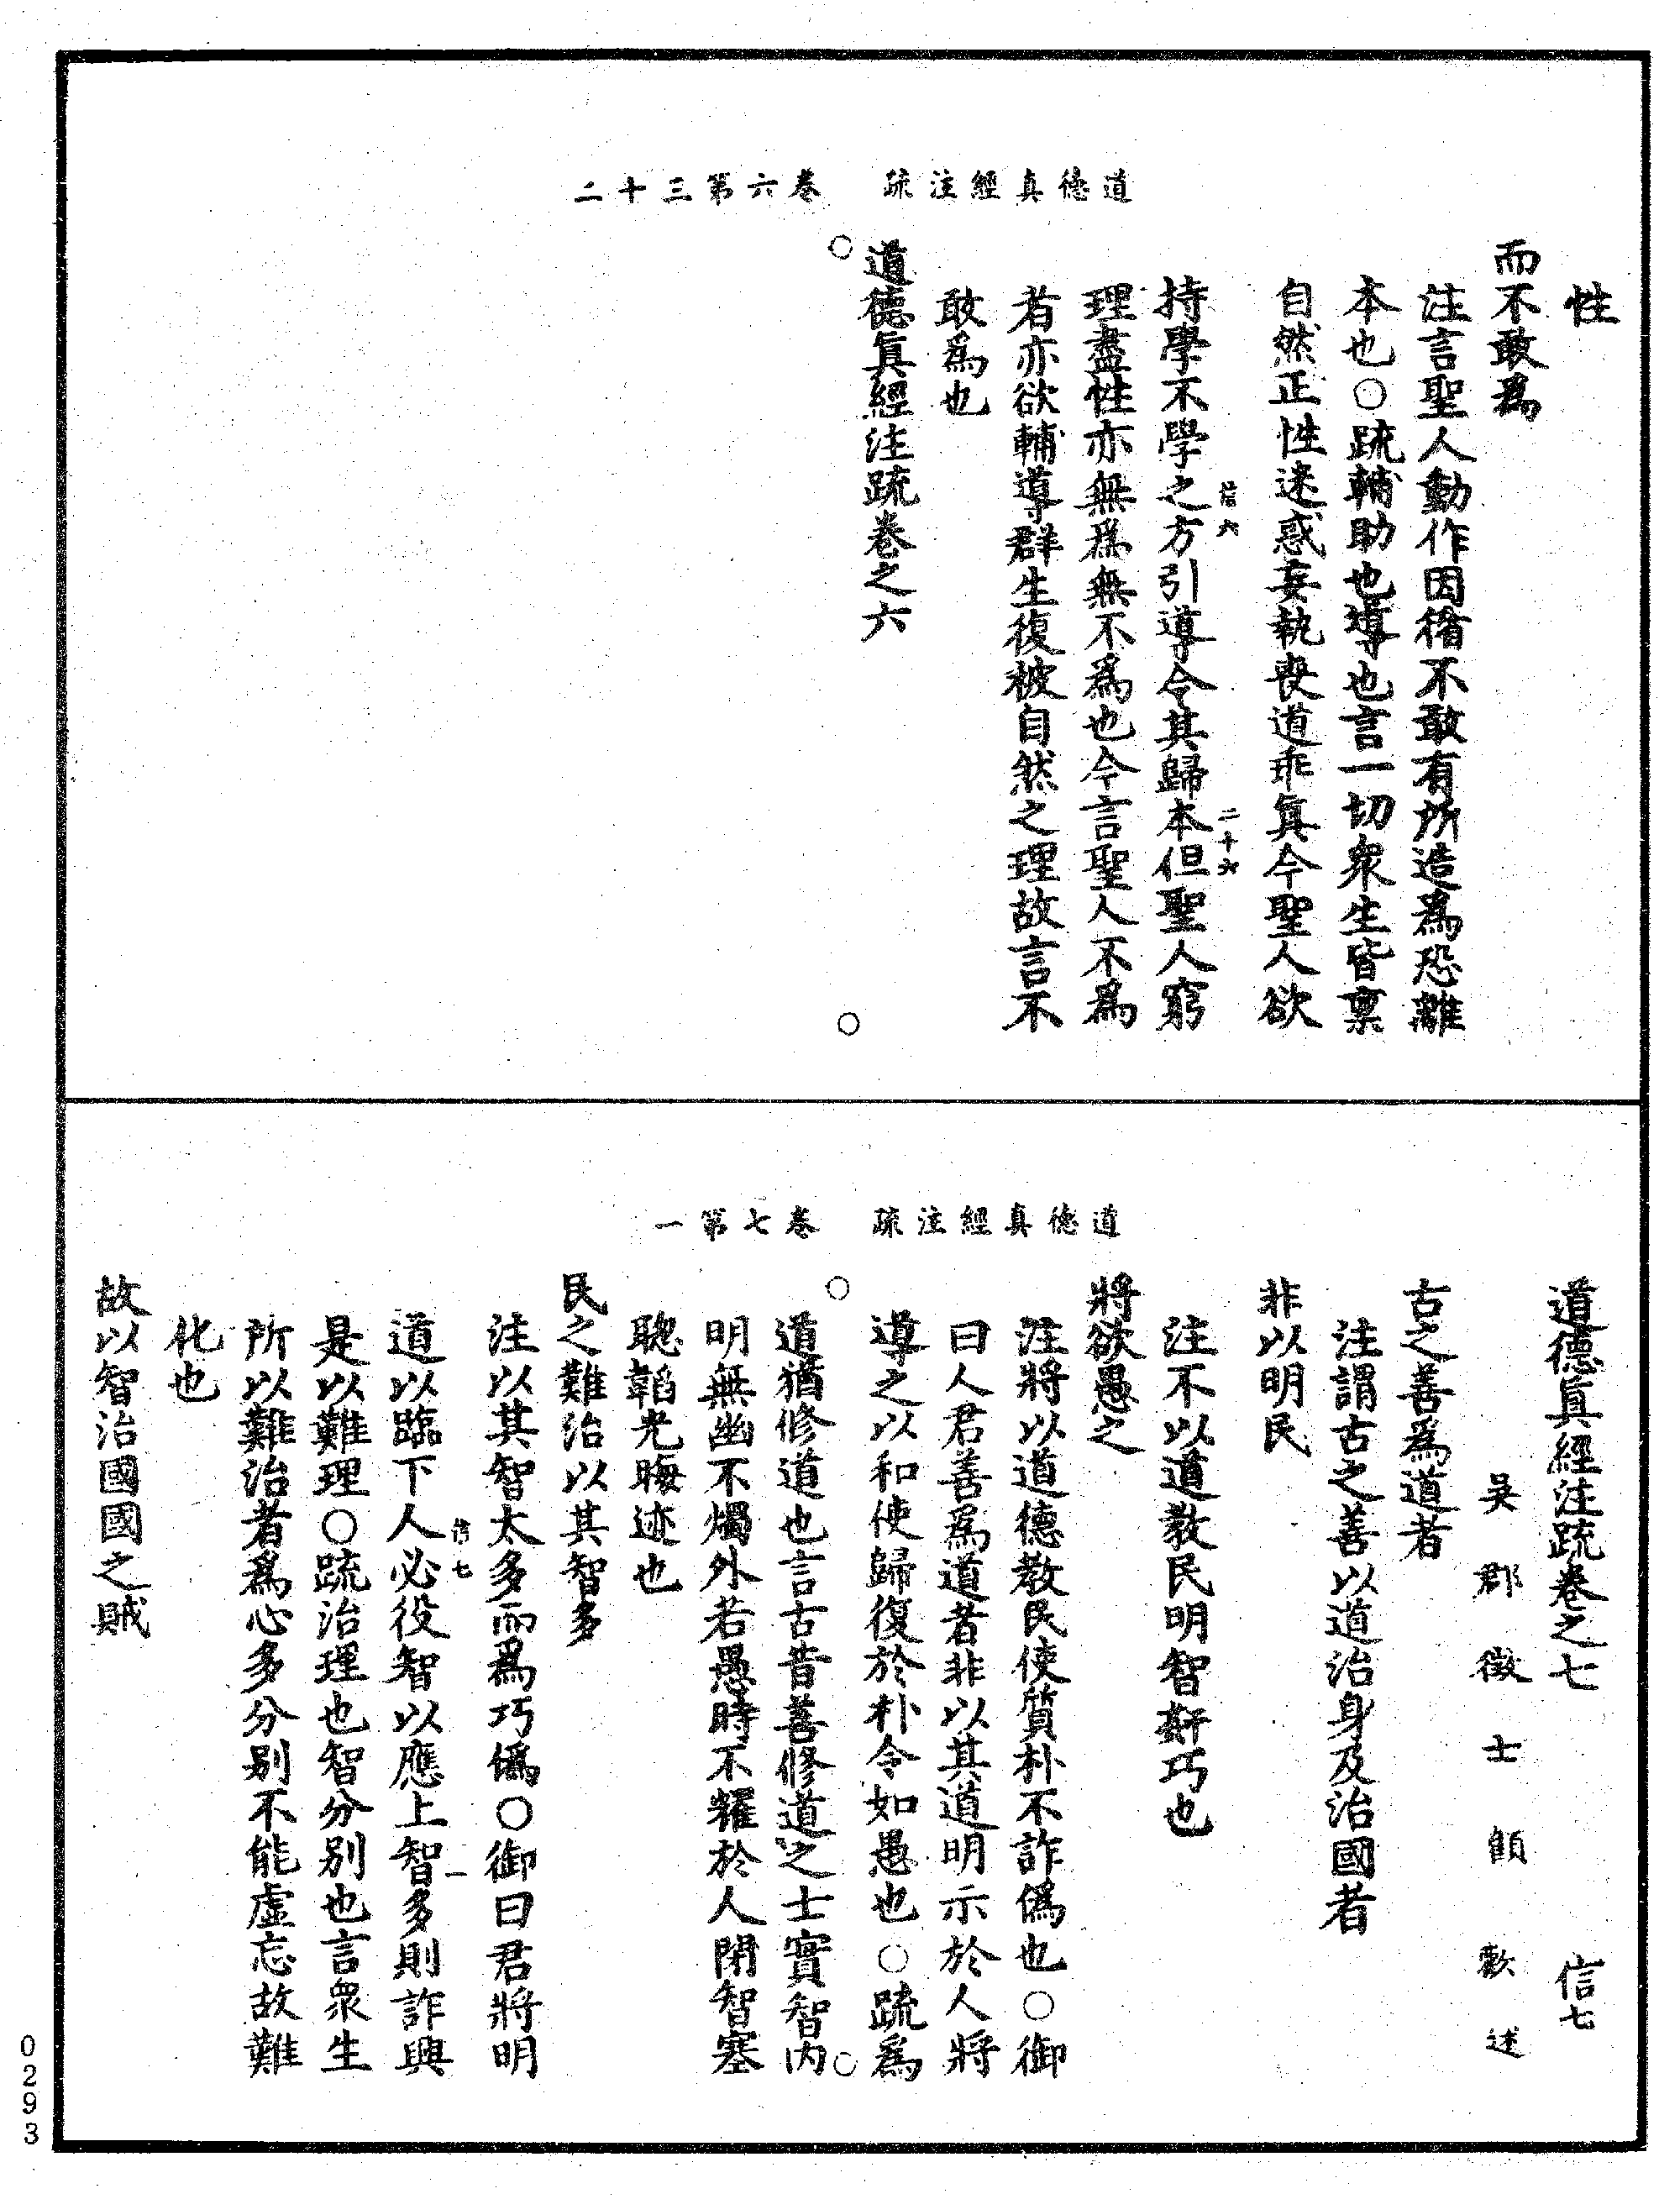 道德真經注疏　卷六第三十二
性
而不敢爲
注言聖人動作因循不敢有所造爲恐離
本也○疏輔助也導也言一切衆生皆稟
自然正性迷惑妄執喪道乖真今聖人欲
持學不學之方引導令其歸本但聖人窮
理盡性亦無爲無不爲也今言聖人不爲
者亦欲輔導群生復被自然之理故言不
敢爲也
道德真經注疏卷之六
二十六
道德真經注疏　卷七第一
道德真經注疏卷之七　信七
吳郡徵士顧歡述
古之善爲道者
注謂古之善以道治身及治國者
非以明民
注不以道教民明智姧巧也
將欲愚之
注將以道德教民使質朴不詐僞也○御
曰人君善爲道者非以其道明示於人將
導之以和使歸復於朴令如愚也○疏爲
道猶修道也言古昔善修道之士實智内
明無幽不燭外若愚時不耀於人閉智塞
聰韜光晦迹也
民之難治以其智多
注以其智太多而爲巧僞○御曰君將明
道以臨下人必役智以應上智多則詐興
信七　一
是以難理○疏治理也智分别也言衆生
所以難治者爲心多分别不能虛忘故難
化也
故以智治國國之賊
0293